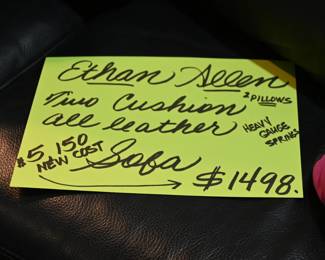 Ethan Allen
2 PILLOWS
Two Cushion
all leather
HEAVY
GAUGE
SPRINGS
Sofa
$5,150
NEW COST
$1498.